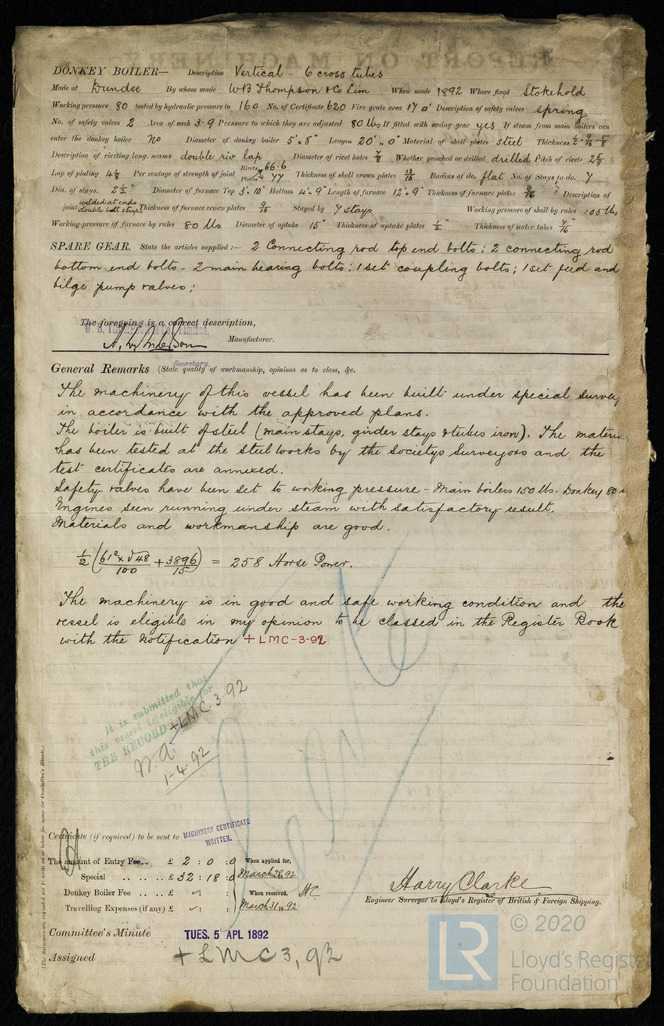 DONKEY BOILER— Description Vertical - 6 cross tubes
Made at Dundee By whom made W B Thompson & Co Lim When made 1892 Where fixed Stokehold
Working pressure 80 tested by hydraulic pressure to 160 No. of Certificate 620 Fire grate area 17 0" Description of safety valves spring
No. of safety valves 2 Area of each 3.9 Pressure to which they are adjusted 80 lbs If fitted with easing gear yes If steam from main boilers can
enter the donkey boiler No Diameter of donkey boiler 5'.8" Length 20'.0" Material of shell plates steel Thickness
Description of riveting long. seams double riv lap Diameter of rivet holes Whether punched or drilled drilled Pitch of rivets 2 5/8
Lap of plating 4 1/2 Per centage of strength of joint Rivets 66.6 Plates 77 Thickness of shell crown plates Radius of do. flat No. of Stays to do. 7
Dia. of stays. 2 1/2" Diameter of furnace Top 3'.10" Bottom 4'.9" Length of furnace 12'.9" Thickness of furnace plates 9/16 Description of
joint welded at ends Thickness of furnace crown plates Stayed by 7 stays Working pressure of shell by rules 105 lbs
Working pressure of furnace by rules 80 lbs Diameter of uptake 15" Thickness of uptake plates 1/2" Thickness of water tubes
SPARE GEAR. State the articles supplied:— 2 Connecting rod top end bolts; 2 connecting rod
bottom end bolts - 2 main bearing bolts; 1 set coupling bolts; 1 set feed and
bilge pump valves;
The foregoing is a correct description,
Manufacturer.
Secretary
General Remarks (State quality of workmanship, opinions as to class, &c.
The machinery of this vessel has been built under special survey
in accordance with the approved plans.
The boiler is built of steel (main stays, girder stays & tubes iron). The materi
has been tested at the steelworks by the Societys Surveyors and the
test certificates are annexed.
Safety valves have been set to working pressure - Main boilers 150 lbs. Donkey 80
Engines seen running under steam with satisfactory result.
Materials and workmanship are good.
1/2 (61² x √48 / 100 + 3896 / 15) = 258 Horse Power.
The machinery is in good and safe working condition and the
vessel is eligible in my opinion to be classed in the Register Book
with the notification + LMC-3-92
It is submitted that
this vessel is eligible for
THE RECORD + LMC 3.92
1-4-92
Certificate (if required) to be sent to MACHINERY CERTIFICATE
WRITTEN.
The amount of Entry Fee.. £ 2 : 0 : 0 When applied for,
Special .. .. .. £ 32 : 18 : 0 March 26.92
Donkey Boiler Fee .. .. £ When received,
Travelling Expenses (if any) £ March 31st 92
Harry Clarke
Engineer Surveyor to Lloyd's Register of British & Foreign Shipping.
Committee's Minute TUES. 5 APL 1892
Assigned + LMC 3, 92
© 2020
LR Lloyd's Register
Foundation